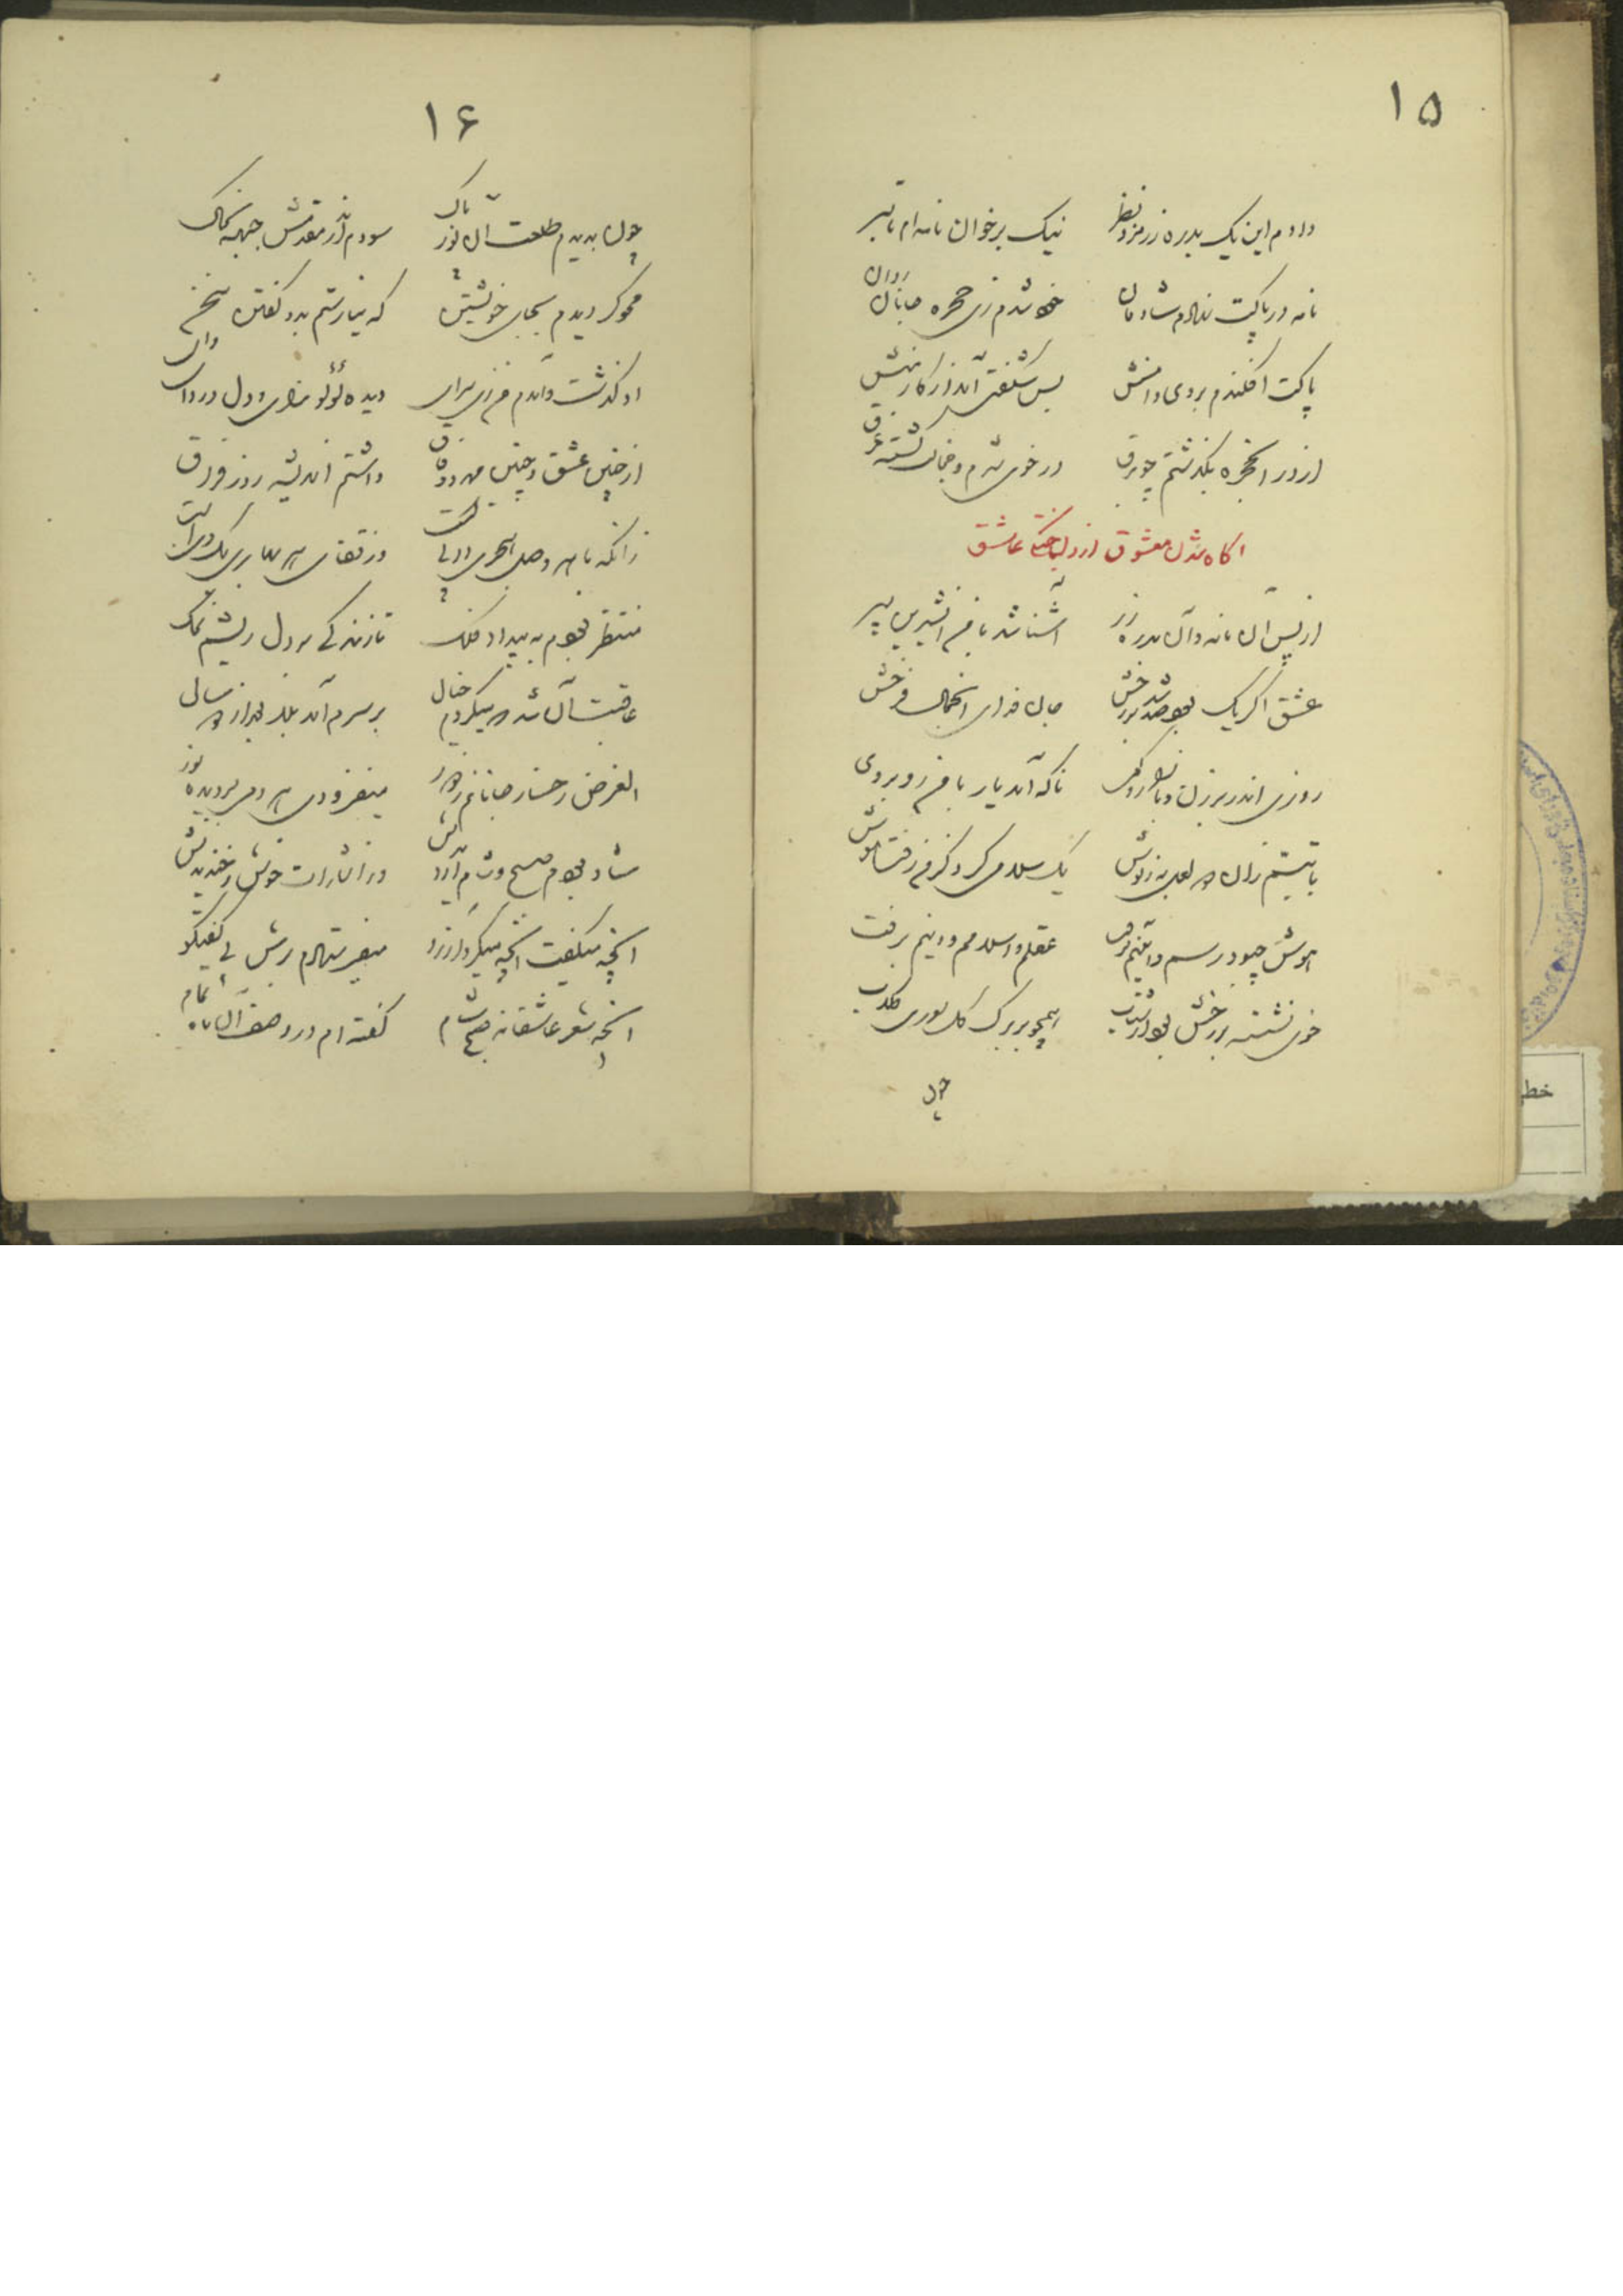 ۱۵
دادم این یک بدره زر مزد نظر نیک برخوان نامه‌ام تا بسر
نامه در پاکت نهادم شادمان شدم زی حجره جانان روان
پاکت افکندم بروی دامنش بس شگفتی آمد از کار منش
از در انحجره بگذشتم چو برق در خوی شرم و خجالت گشته غرق
اگاه شدن معشوق از دلباختگی عاشق
از پس آن نامه و آن بدره زر آشنا شد با من انشیرین پسر
عشق اگر یک بود صد شد بر رخش جان فدای انجمال فرخش
روزی اندر برزن ناگه آمد یار با من روبروی
با تبسم زان لعل نوش یک سلامی کرد کز من رفت هوش
هوش چبود رسم و آئینم برفت عقلم و اسلامم و دینم برفت
خوی نشسته بر رخش بود از شتاب همچو بر برگ گل سوری گلاب
چون
۱۶
چون بدیدم طلعت آن نور پاک سودم اندر مقدمش جبهه بخاک
محو گردیدم بجای خویشتن که نیارستم بدو گفتن سخن
او گذشت و آمدم من زی سرای دیده لؤلؤ زای و دل دردا
از چنین عشق و چنین داشتم اندیشه روز فراق
زانکه با هر وصل هجری وز قفای هر
منتظر بودم به بیداد فلک تا زند کی بر دل ریشم نمک
عاقبت آن شد که میکردم خیال بر سرم آمد بلا بعد از سالی
الغرض رخسار جانانم ز دور میفزودی هر دمی بر دیده نور
شاد بودم صبح و شام از وز اشارات خوش و خندیدنش
انچه میگفت انچه میکرد ارزو میفرستادم برش بی گفتگو
انچه شعر عاشقانه صبح و شام گفته‌ام در وصف آن ماه تمام
خط